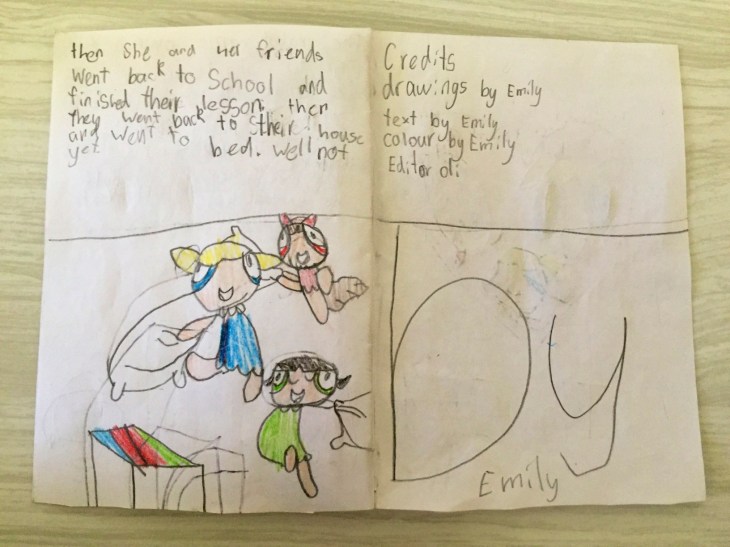 then She and her friends
Went back to School and
finished their lesson. then
They went back to their house
and went to bed. Well not
yet
Credits
drawings by Emily
text by Emily
colour by Emily
Editor oli
By
Emily